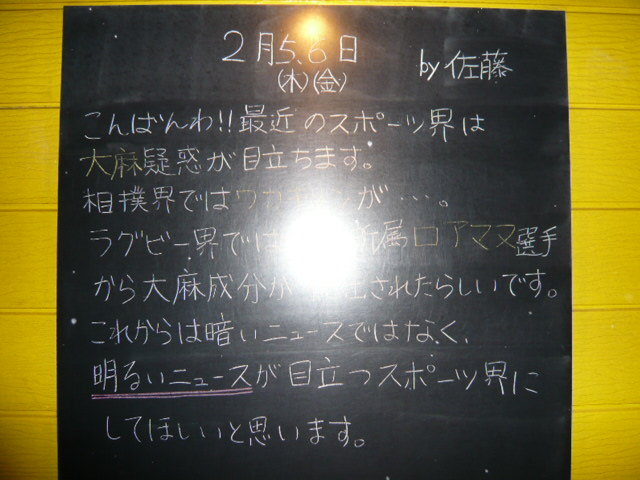 2月5.6日
(木)(金)
by 佐藤
こんばんわ!!最近のスポーツ界は
大麻疑惑が目立ちます。
相撲界ではワカが…。
ラグビー界では属ロアマヌ選手
から大麻成分がされたらしいです。
これからは暗いニュースではなく、
明るいニュースが目立つスポーツ界に
してほしいと思います。